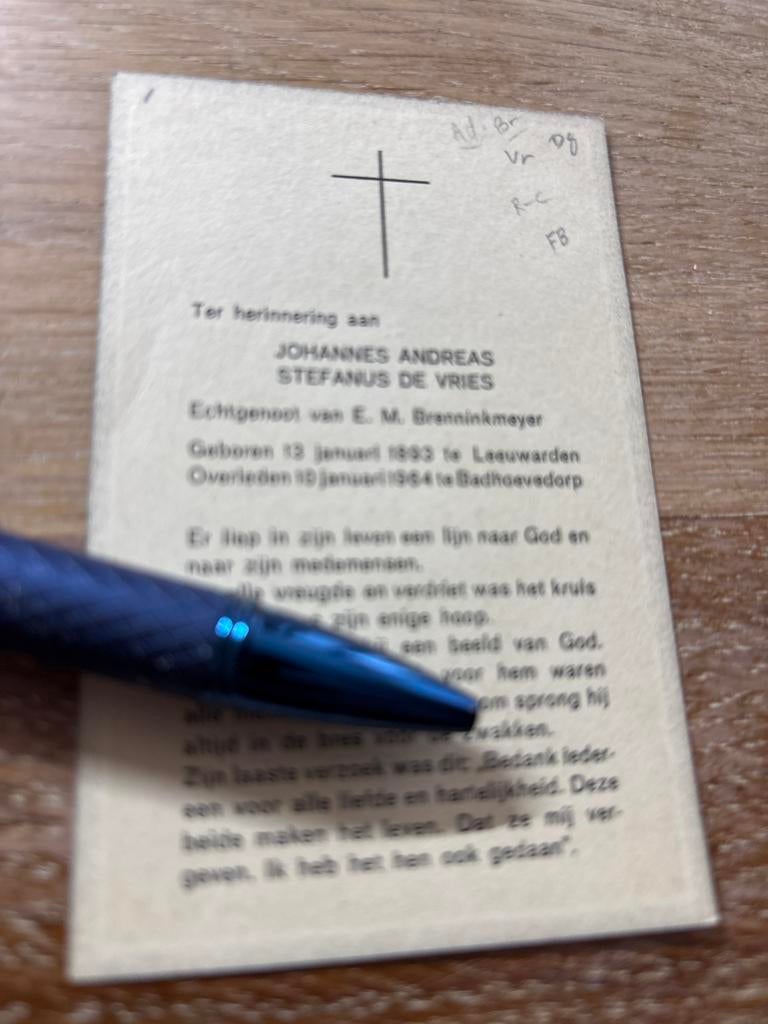 Ad. Br
Vr Dg
R-C
FB
Ter herinnering aan
JOHANNES ANDREAS
STEFANUS DE VRIES
Echtgenoot van E. M. Brenninkmeyer
Geboren 13 januari 1893 te Leeuwarden
Overleden 10 januari 1964 te Badhoevedorp
Er liep in zijn leven een lijn naar God en
naar zijn medemensen.
vreugde en verdriet was het kruis
zijn enige hoop.
een beeld van God.
voor hem waren
sprong hij
altijd in de bres voor de zwakken.
Zijn laatste verzoek was dit: „Bedank ieder-
een voor alle liefde en hartelijkheid. Deze
beide maken het leven. Dat ze mij ver-
geven. Ik heb het hen ook gedaan".